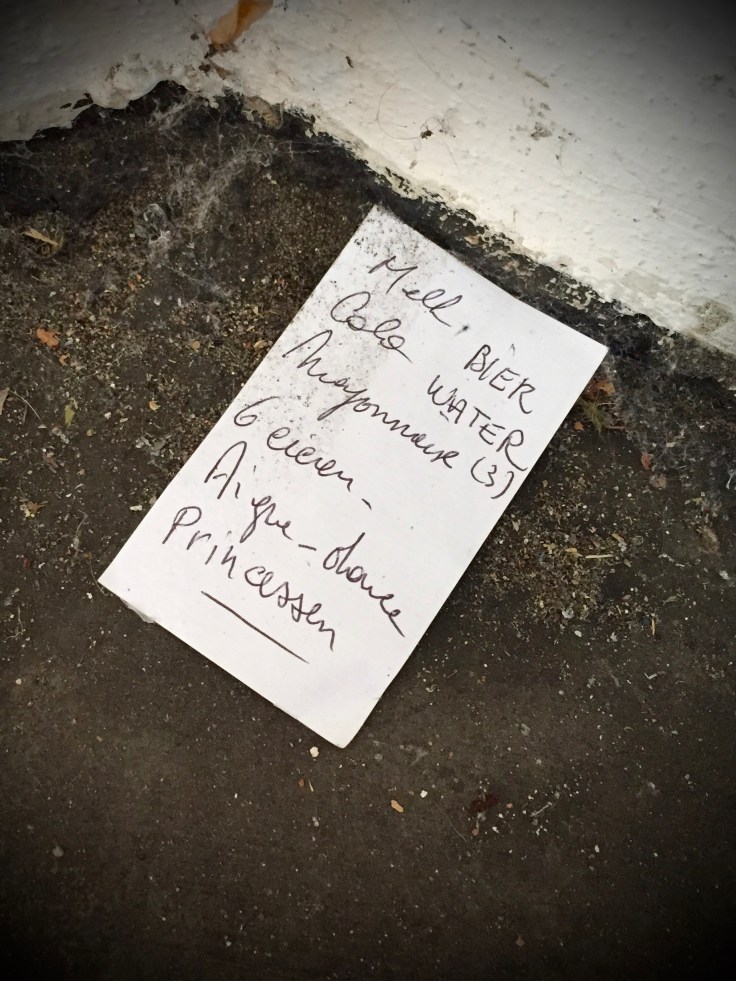 Melk, BIER
Cola WATER
Mayonnaise (3)
6 eieren -
Aigre-douce
Princessen